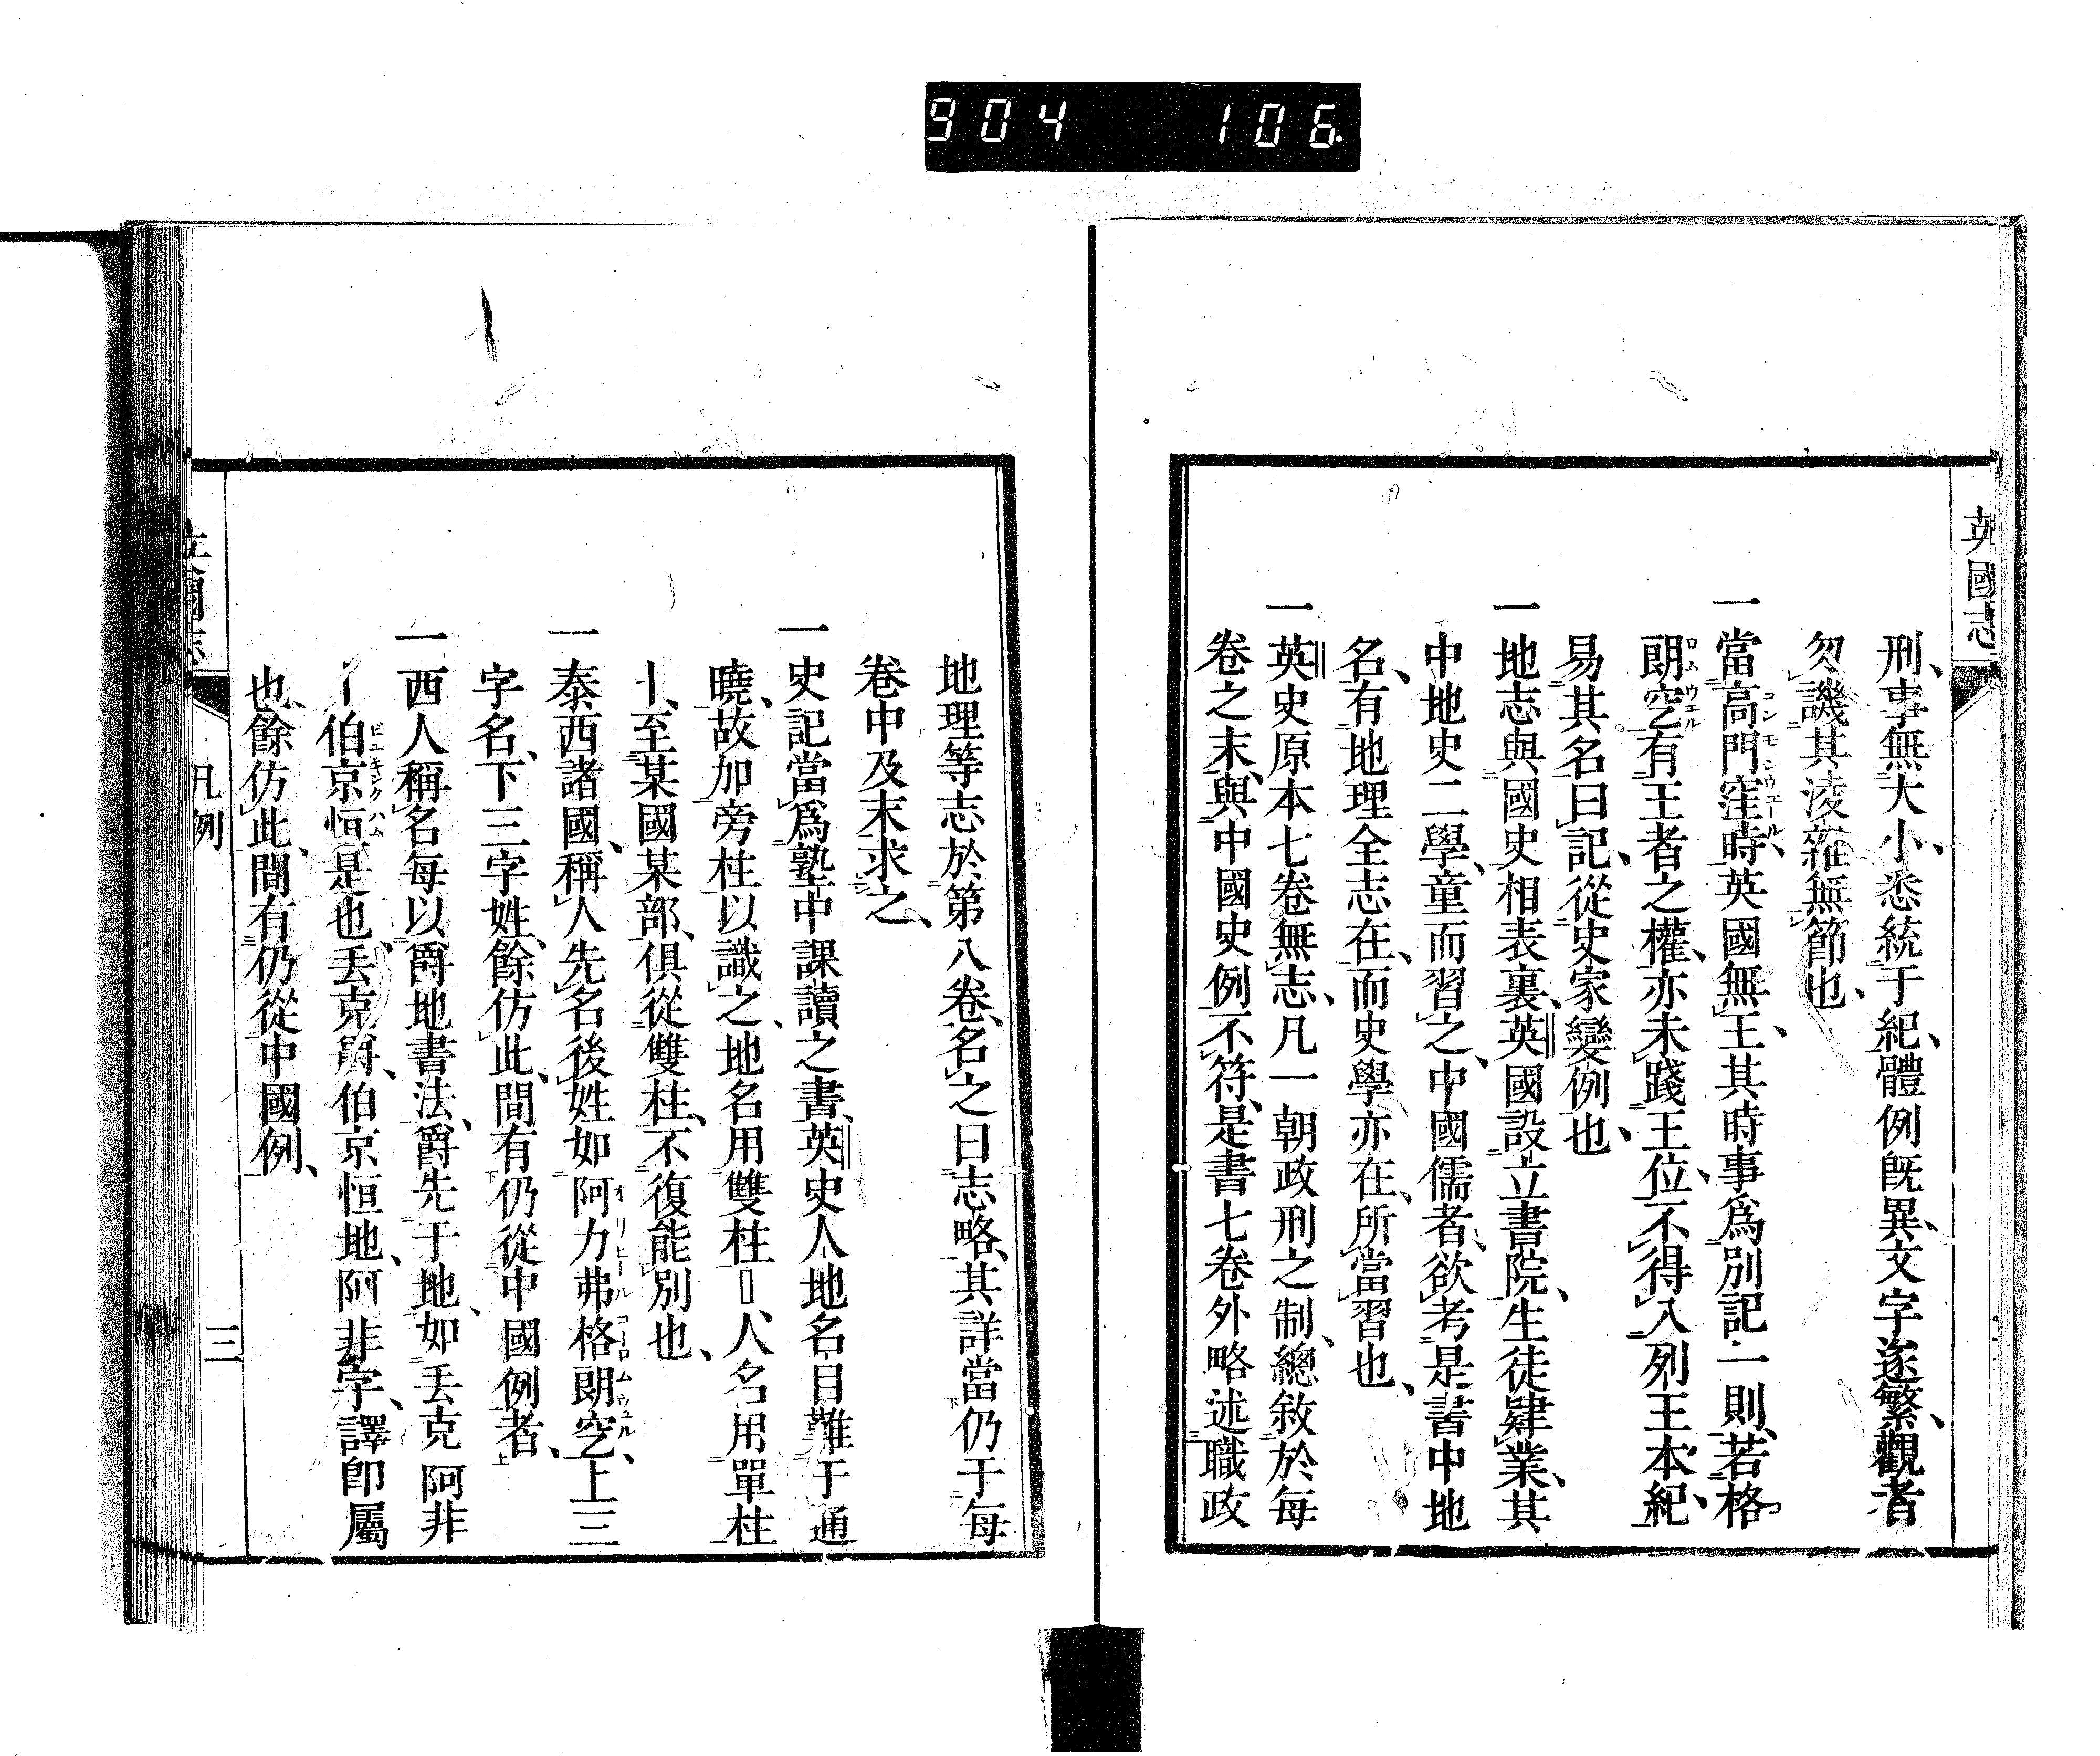 904 106
英國志
刑、事無大小、悉統于紀、體例旣異、文字遂繁、觀者
勿譏其淩雜無節也、
一當高門窪時、英國無王、其時事爲別記一則、若格
朗空有王者之權、亦未踐王位、不得入列王本紀、
易其名曰記、從史家變例也、
一地志與國史相表裏、英國設立書院、生徒肄業、其
中地史二學、童而習之、中國儒者、欲考是書中地
名、有地理全志在、而史學亦在、所當習也、
一英史原本七卷無志、凡一朝政刑之制、總敘於每
卷之末、與中國史例不符、是書七卷外略述職政
地理等志於第八卷、名之曰志略、其詳當仍于每
卷中及末求之、
一史記當爲塾中課讀之書、英史人地名目難于通
曉、故加旁柱以識之、地名用雙柱〢、人名用單柱
〡、至某國某部、俱從雙柱、不復能別也、
一泰西諸國、稱人先名後姓、如阿力弗格朗空、上三
字名、下三字姓、餘仿此、間有仍從中國例者、
一西人稱名每以爵地書法、爵先于地、如丢克阿非
伯京恒是也、丢克爵、伯京恒地、阿非字、譯卽屬
也、餘仿此、間有仍從中國例、
英國志
凡例
三